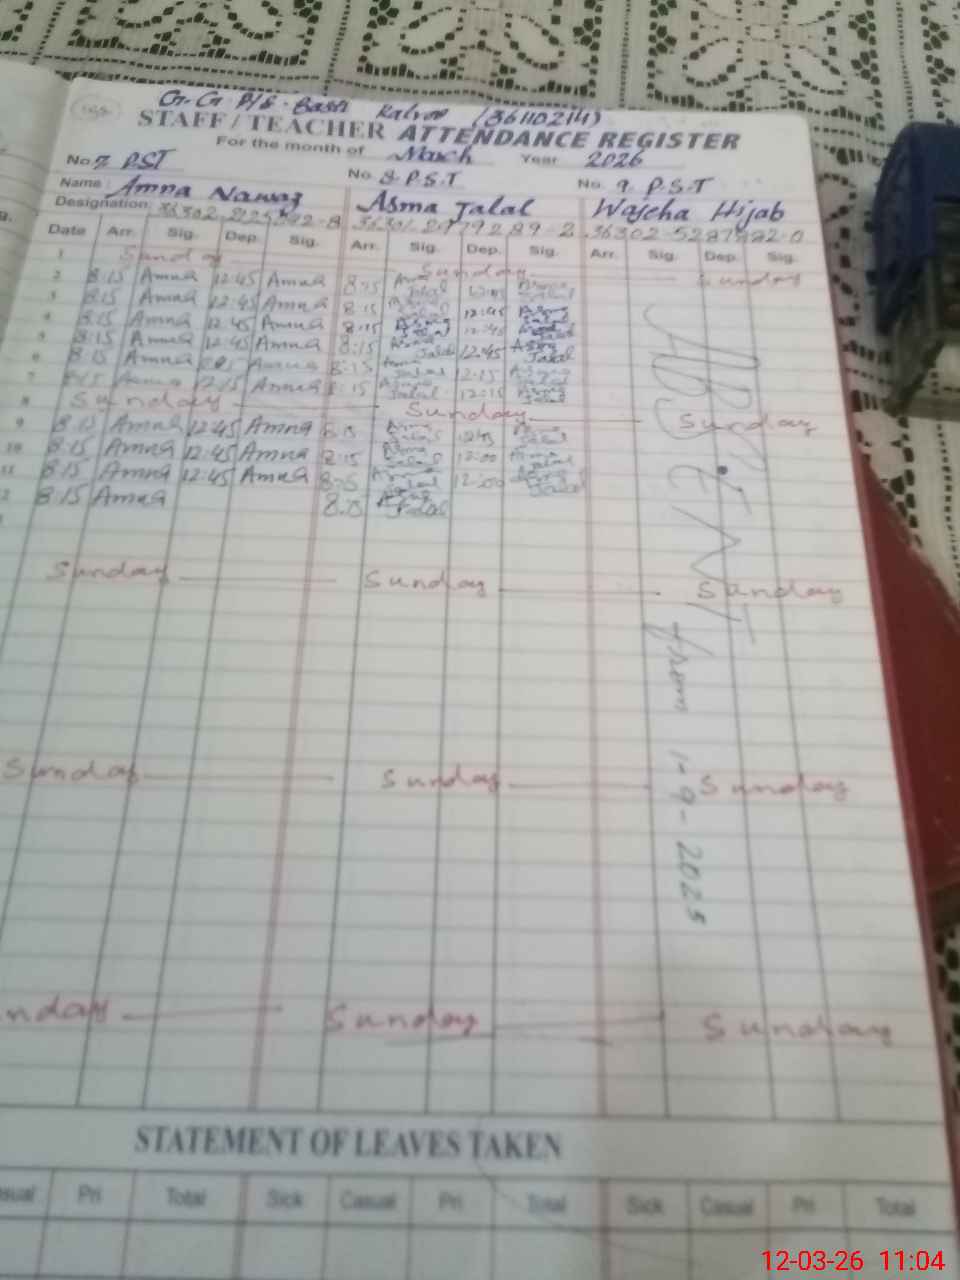 G.G.P/S. Basti Kalroo (36110214)
STAFF / TEACHER ATTENDANCE REGISTER
For the month of March Year 2026
No 7. P.S.T No 8. P.S.T No. 9. P.S.T
Name: Amna Nawaz Asma Jalal Wajeha Hijab
Designation:
Date Arr. Sig. Dep. Sig. Arr. Sig. Dep. Sig. Arr. Sig. Dep. Sig.
1 Sunday Sunday Sunday
2 8:15 Amna 12:45 Amna 8:15 Asma Jalal 12:45 Asma Jalal
3 8:15 Amna 12:45 Amna 8:15 Asma Jalal 12:45 Asma Jalal
4 8:15 Amna 12:45 Amna 8:15 Asma Jalal 12:45 Asma Jalal
5 8:15 Amna 12:45 Amna 8:15 Asma Jalal 12:45 Asma Jalal
6 8:15 Amna Amna 8:15 Asma Jalal 12:15 Asma Jalal
7 8:15 Amna 12:15 Amna 8:15 Asma Jalal 12:15 Asma Jalal
8 Sunday Sunday Sunday
9 8:15 Amna 12:45 Amna 8:15 Asma Jalal 12:45 Asma Jalal
10 8:15 Amna 12:45 Amna 8:15 Asma Jalal 12:00 Asma Jalal
11 8:15 Amna 12:45 Amna 8:15 Asma Jalal 12:00 Asma Jalal
12 8:15 Amna 8:15 Asma Jalal
ABSENT from 1-9-2025
Sunday Sunday Sunday
Sunday Sunday Sunday
nday Sunday Sunday
STATEMENT OF LEAVES TAKEN
sual Pri Total Sick Casual Pri Total Sick Casual Pri Total
12-03-26 11:04